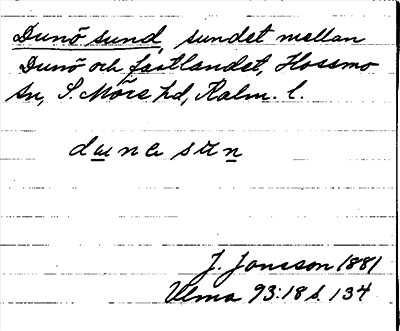 Dunö sund, sundet mellan
Dunö och fastlandet, Hossmo
sn, S. Möre hd, Kalm. l.
J. Jonsson 1881
Ulma 93:18 s. 134